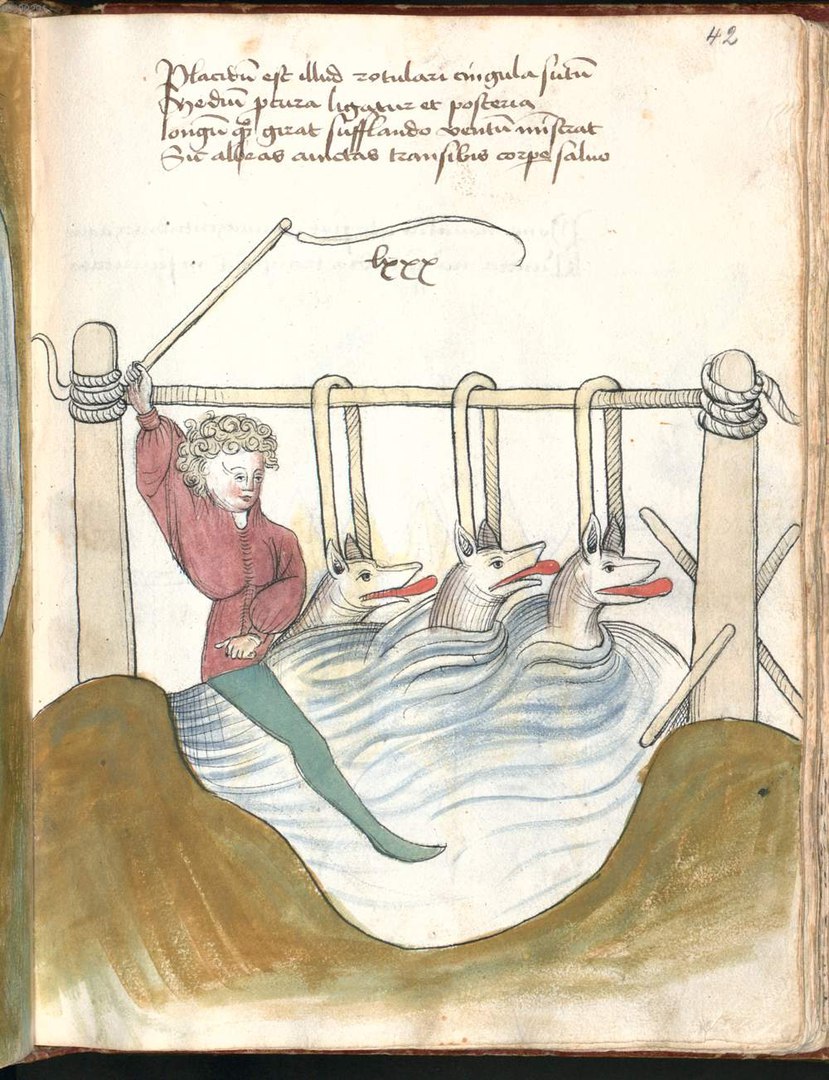 42
Placidū est illud rotulari cingula sutū
Mediū p cura ligatur et posteria
longū qꝫ girat sufflando ventū mīstrat
Sic alpeas cunctas transibis corpe saluo
lxxx